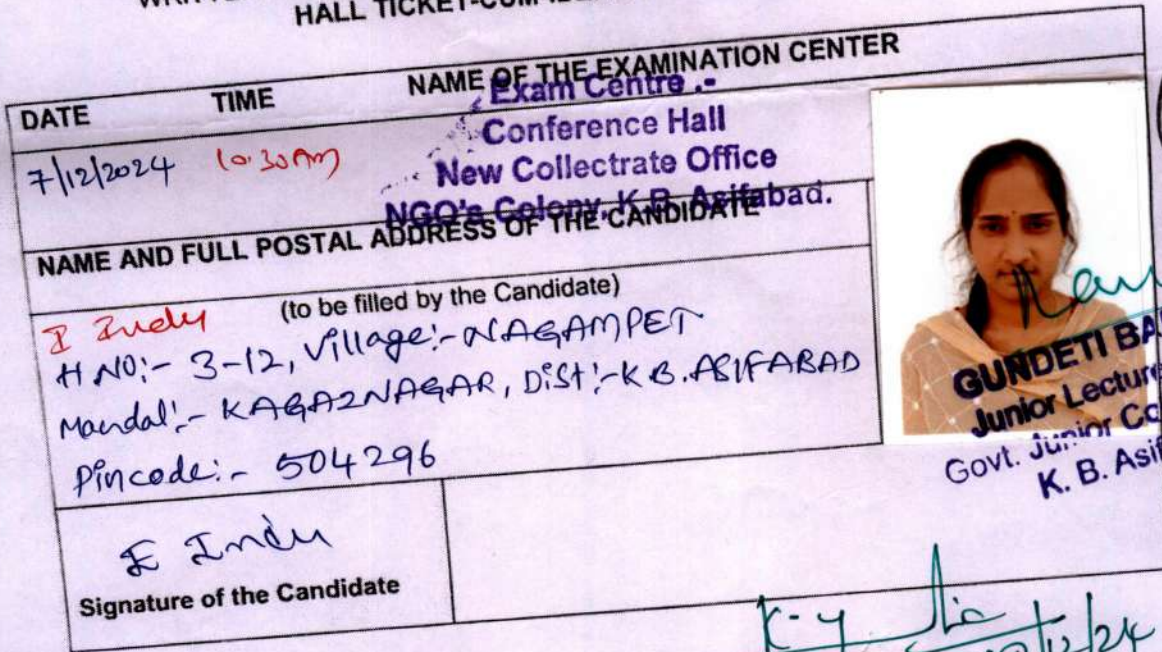 HALL TICKET-CUM
DATE TIME NAME OF THE EXAMINATION CENTER
7/12/2024 10.30AM
Exam Centre :-
Conference Hall
New Collectrate Office
NGO's Colony, K.B. Asifabad.
NAME AND FULL POSTAL ADDRESS OF THE CANDIDATE
(to be filled by the Candidate)
H.NO:- 3-12, Village:- NAGAMPET
Mandal:- KAGAZNAGAR, Dist:- K.B.ASIFABAD
Pincode:- 504296
GUNDETI BA
Junior Lecture
Govt. Junior Co
K. B. Asif
E Indu
Signature of the Candidate
12/24